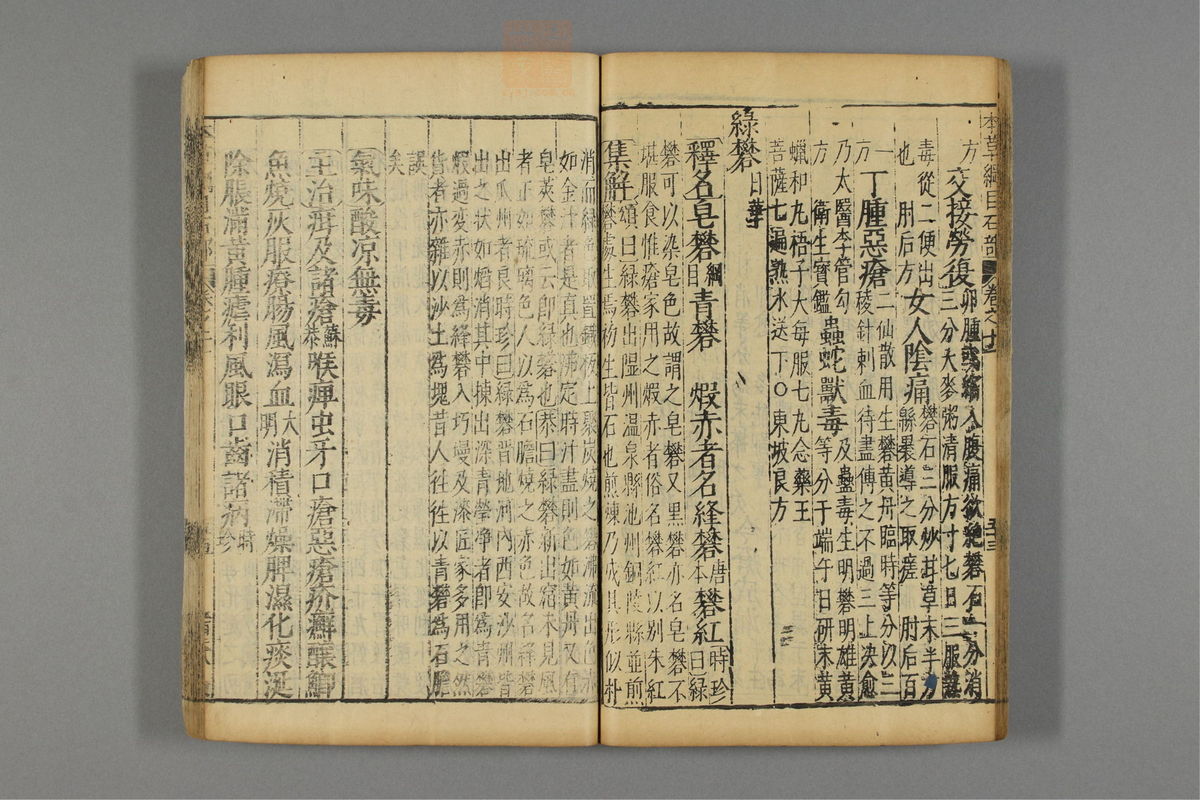 本草綱目石部 卷之十一
方
交接勞復 卵腫或縮入腹痛欲絶礬石一分消
三分大麥粥清服方寸七日三服熱
毒從二便出
也 肘后方 女人陰痛 礬石三分炒甘草末半分
緜裹導之取瘥 肘后百
一方
丁腫惡瘡 二仙散用生礬黃丹臨時等分以三
稜針刺血待盡傅之不過三上决愈
乃太醫李管勾
方 衛生寶鑑 蟲蛇獸毒 及蠱毒生明礬明雄黃
等分于端午日研末黃
蠟和丸梧子大每服七丸念藥王
菩薩七遍熟水送下○東坡良方
綠礬 日華
釋名皂礬 綱目 青礬 煆赤者名絳礬 唐本 礬紅 時珍
曰綠
礬可以染皂色故謂之皂礬又黑礬亦名皂礬不
堪服食惟瘡家用之煆赤者俗名礬紅以别朱紅
集解 頌曰綠礬出隰州温泉縣池州銅陵縣並煎
礬處生焉初生皆石也煎煉乃成其形似朴
消而綠色取置鐵板上聚炭燒之礬沸流出色赤
如金汁者是真也沸定時汁盡則色如黃丹又有
皂莢礬或云即綠礬也恭曰綠礬新出窟未見風
者正如琉璃色人以爲石膽燒之赤色故名絳礬
出瓜州者良時珍曰綠礬晋地河内西安沙州皆
出之狀如焰消其中揀出深青瑩淨者即爲青礬
煆過變赤則爲絳礬入圬墁及漆匠家多用之然
貨者亦雜以沙土爲塊昔人徃徃以青礬爲石膽
誤
矣
氣味酸凉無毒
主治疳及諸瘡 蘇恭 喉痺虫牙口瘡惡瘡疥癬釀鯽
魚燒灰服療腸風瀉血 大明 消積滯燥脾濕化痰涎
除脹滿黃腫瘧利風眼口齒諸病 時珍